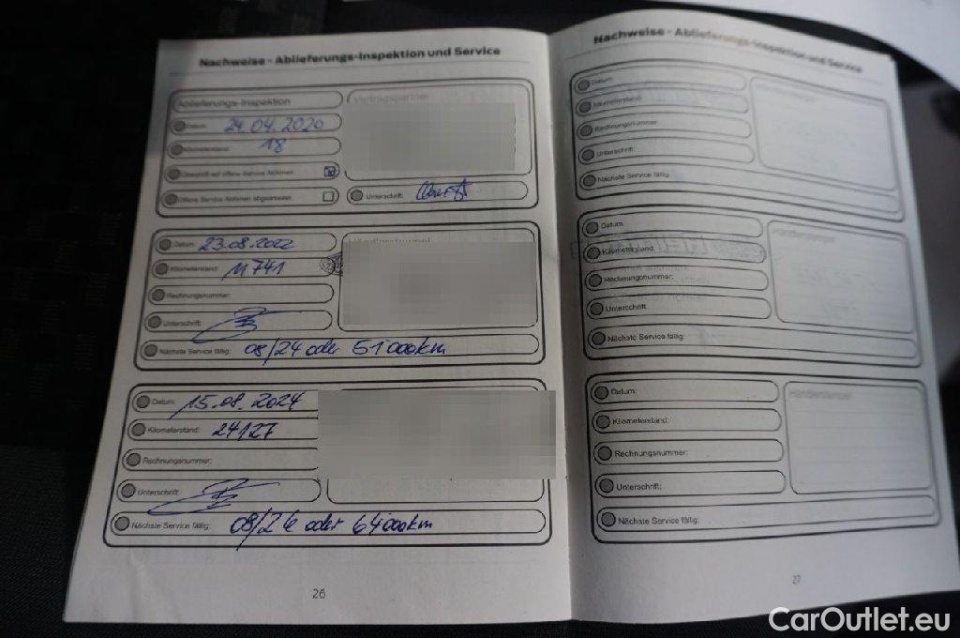 Nachweise - Ablieferungs-Inspektion und Service
Ablieferungs-Inspektion
Vertragspartner
Datum: 24.04.2020
Kilometerstand: 18
Offene Service Aktionen abgearbeitet
Unterschrift:
Datum: 23.08.2022
Händlerstempel
Kilometerstand: 11741
Rechnungsnummer:
Unterschrift:
Nächste Service fällig: 08/24 oder 51000km
Datum: 15.08.2024
Kilometerstand: 24127
Rechnungsnummer:
Unterschrift:
Nächste Service fällig: 08/26 oder 64000km
26
Nachweise - Ablieferungs-Inspektion und Service
Datum:
Kilometerstand:
Rechnungsnummer:
Unterschrift:
Nächste Service fällig:
Datum:
Händlerstempel
Kilometerstand:
Rechnungsnummer:
Unterschrift:
Nächste Service fällig:
Datum:
Händlerstempel
Kilometerstand:
Rechnungsnummer:
Unterschrift:
Nächste Service fällig:
27
CarOutlet.eu